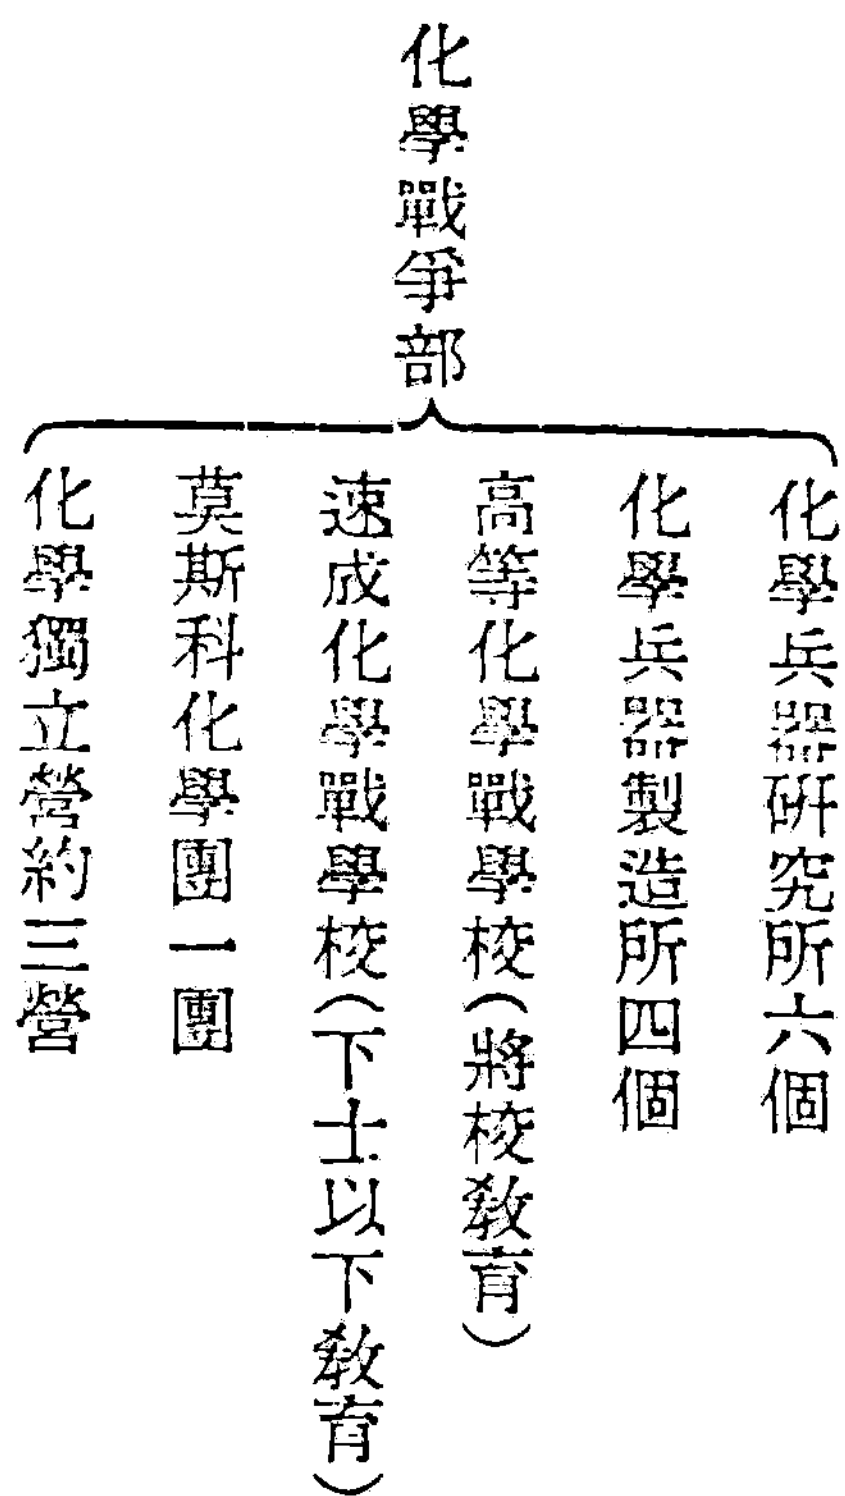 化學戰爭部
化學兵器硏究所六個
化學兵器製造所四個
高等化學戰學校(將校敎育)
速成化學戰學校(下士以下敎育)
莫斯科化學團一團
化學獨立營約三營